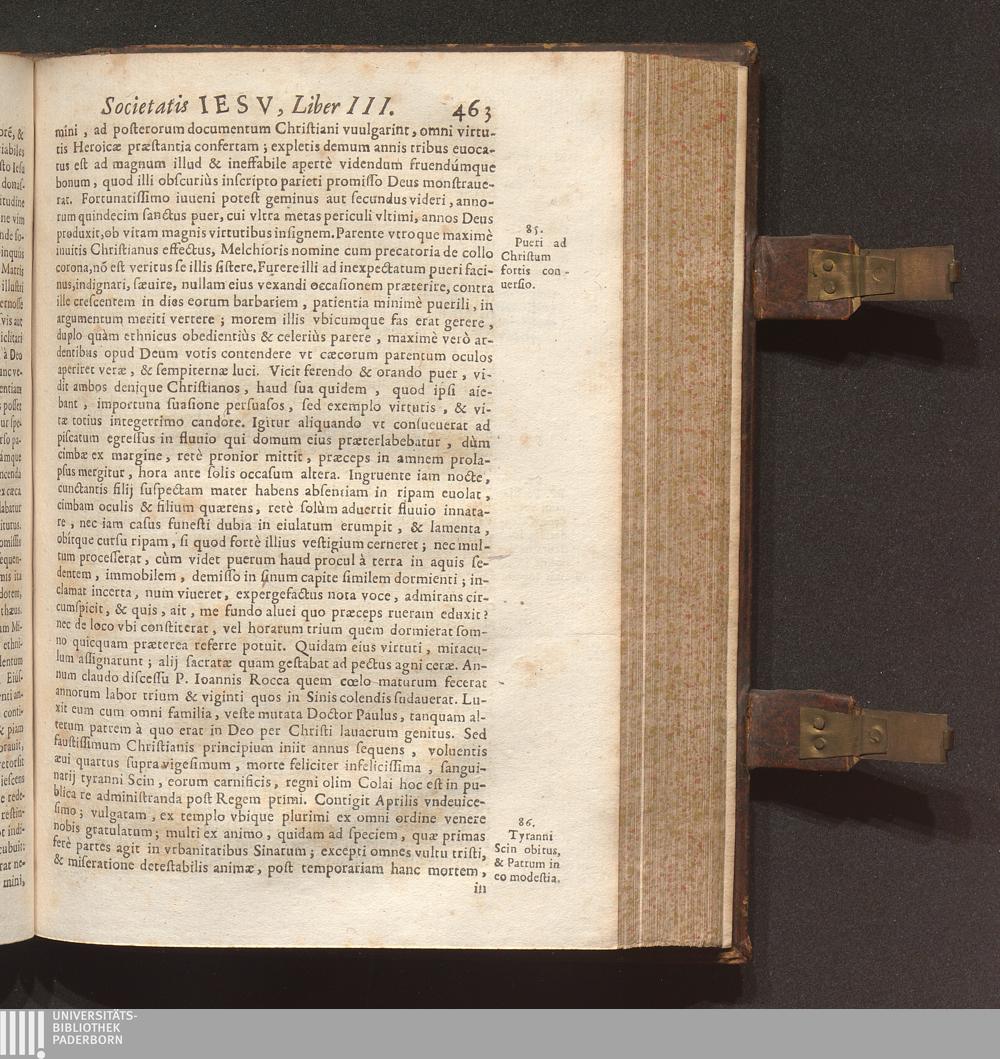 Societatis IESV, Liber III. 463
mini, ad posterorum documentum Christiani vuulgarint, omni virtu-
tis Heroicæ præstantia confertam; expletis demum annis tribus euoca-
tus est ad magnum illud & ineffabile apertè videndum fruendúmque
bonum, quod illi obscuriùs inscripto parieti promisso Deus monstraue-
rat. Fortunatissimo iuueni potest geminus aut secundus videri, anno-
rum quindecim sanctus puer, cui vltra metas periculi vltimi, annos Deus
produxit, ob vitam magnis virtutibus insignem. Parente vtroque maximè
inuitis Christianus effectus, Melchioris nomine cum precatoria de collo
corona, nõ est veritus se illis sistere. Furere illi ad inexpectatum pueri faci-
nus, indignari, sæuire, nullam eius vexandi occasionem præterire, contra
ille crescentem in dies eorum barbariem, patientia minimè puerili, in
argumentum meriti vertere; morem illis vbicumque fas erat gerere,
duplo quàm ethnicus obedientiùs & celeriùs parere, maximè verò ar-
dentibus opud Deum votis contendere vt cæcorum parentum oculos
aperiret veræ, & sempiternæ luci. Vicit ferendo & orando puer, vi-
dit ambos denique Christianos, haud sua quidem, quod ipsi aie-
bant, importuna suasione persuasos, sed exemplo virtutis, & vi-
tæ totius integerrimo candore. Igitur aliquando vt consueuerat ad
piscatum egressus in fluuio qui domum eius præterlabebatur, dùm
cimbæ ex margine, retè pronior mittit, præceps in amnem prola-
psus mergitur, hora ante solis occasum altera. Ingruente iam nocte,
cunctantis filij suspectam mater habens absentiam in ripam euolat,
cimbam oculis & filium quærens, retè solùm aduertit fluuio innata-
re, nec iam casus funesti dubia in eiulatum erumpit, & lamenta,
obitque cursu ripam, si quod fortè illius vestigium cerneret; nec mul-
tum processerat, cùm videt puerum haud procul à terra in aquis se-
dentem, immobilem, demisso in sinum capite similem dormienti; in-
clamat incerta, num viueret, expergefactus nota voce, admirans cir-
cumspicit, & quis, ait, me fundo aluei quo præceps rueram eduxit?
nec de loco vbi constiterat, vel horarum trium quem dormierat som-
no quicquam præterea referre potuit. Quidam eius virtuti, miracu-
lum assignarunt; alij sacratæ quam gestabat ad pectus agni ceræ. An-
num claudo discessu P. Ioannis Rocca quem cœlo maturum fecerat
annorum labor trium & viginti quos in Sinis colendis sudauerat. Lu-
xit eum cum omni familia, veste mutata Doctor Paulus, tanquam al-
terum patrem à quo erat in Deo per Christi lauacrum genitus. Sed
faustissimum Christianis principium iniit annus sequens, voluentis
æui quartus supra vigesimum, morte feliciter infelicissima, sangui-
narij tyranni Scin, eorum carnificis, regni olim Colai hoc est in pu-
blica re administranda post Regem primi. Contigit Aprilis vndeuice-
simo; vulgatam, ex templo vbique plurimi ex omni ordine venere
nobis gratulatum; multi ex animo, quidam ad speciem, quæ primas
ferè partes agit in vrbanitatibus Sinarum; excepti omnes vultu tristi,
& miseratione detestabilis animæ, post temporariam hanc mortem,
in
85.
Pueri ad
Christum
fortis con-
uersio.
86.
Tyranni
Scin obitus,
& Patrum in
eo modestia.
UNIVERSITÄTS-
BIBLIOTHEK
PADERBORN